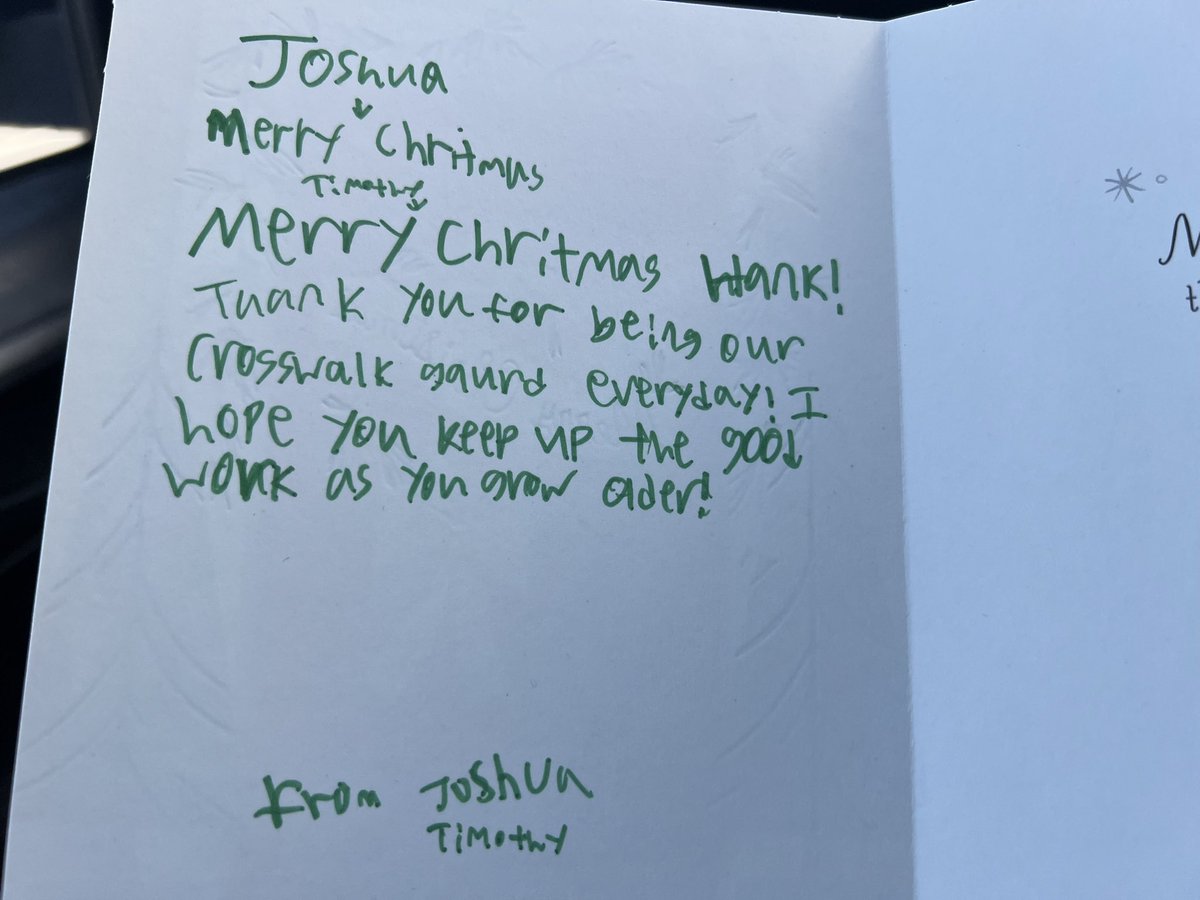 Joshua
Merry Chritmas
Timothy
Merry Chritmas Hank!
Thank you for being our
Crosswalk gaurd everyday! I
hope you keep up the good
work as you grow older!
from Joshua
Timothy